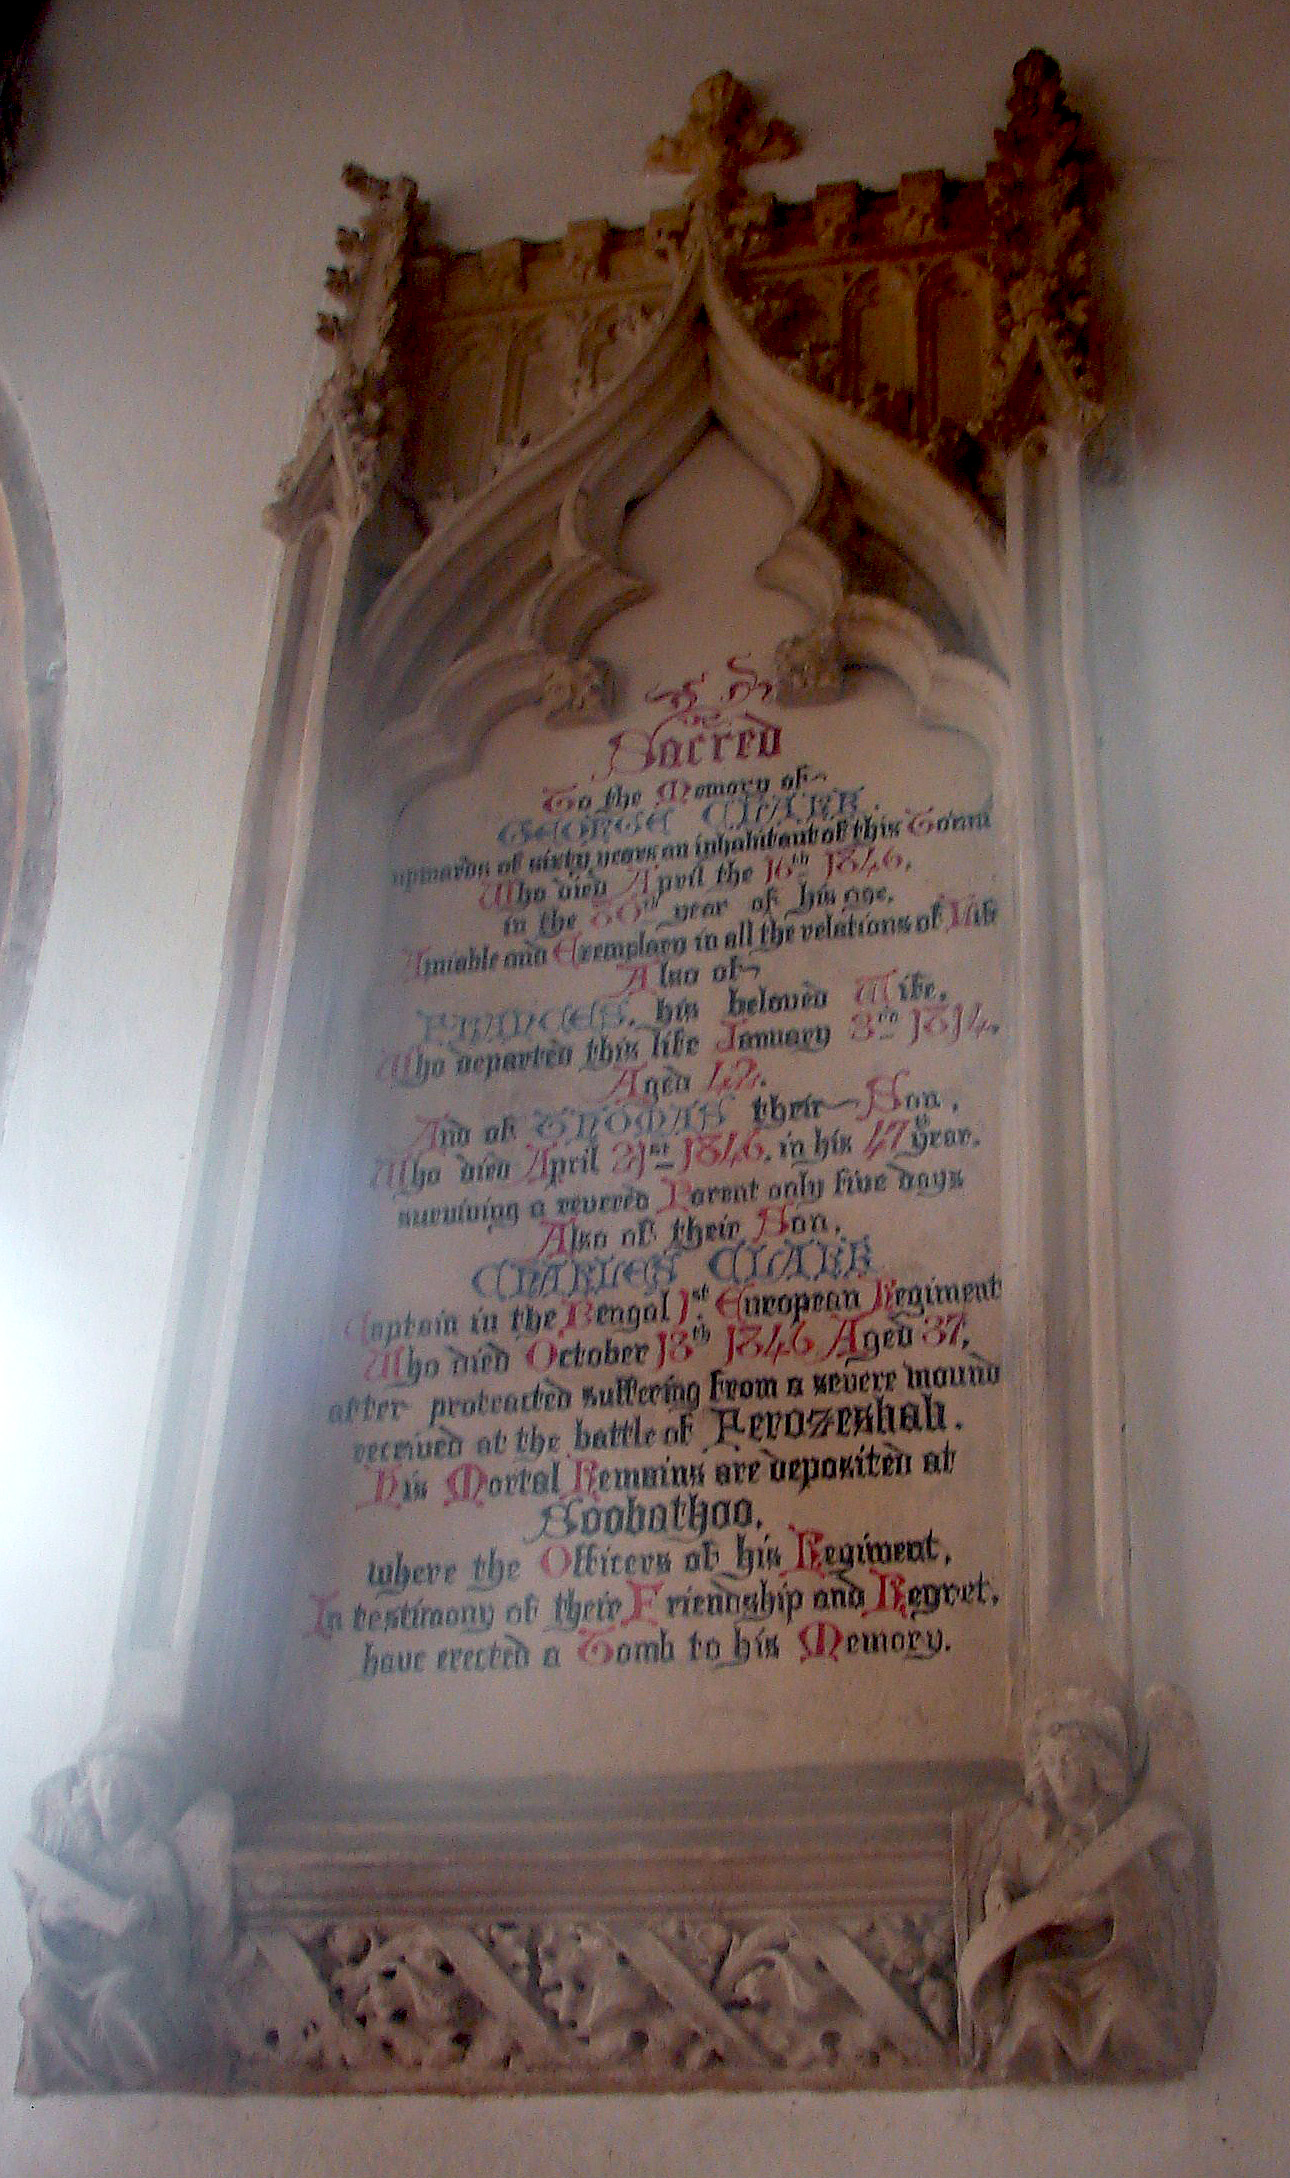 Sacred
To the Memory of
GEORGE CLARK.
upwards of sixty years an inhabitant of this Town
Who died April the 16th 1846.
in the 80th year of his age.
Amiable and Exemplary in all the relations of Life
Also of
FRANCES. his beloved Wife.
Who departed this life January 3rd 1814.
Aged 42.
And of THOMAS their Son.
Who died April 21st 1846. in his 47th year.
surviving a revered Parent only five days
Also of their Son.
CHARLES CLARK
Captain in the Bengal 1st European Regiment
Who died October 13th 1846 Aged 37.
after protracted suffering from a severe wound
received at the battle of Ferozeshah.
His Mortal Remains are deposited at
Soobathoo.
where the Officers of his Regiment.
In testimony of their Friendship and Regret.
have erected a Tomb to his Memory.